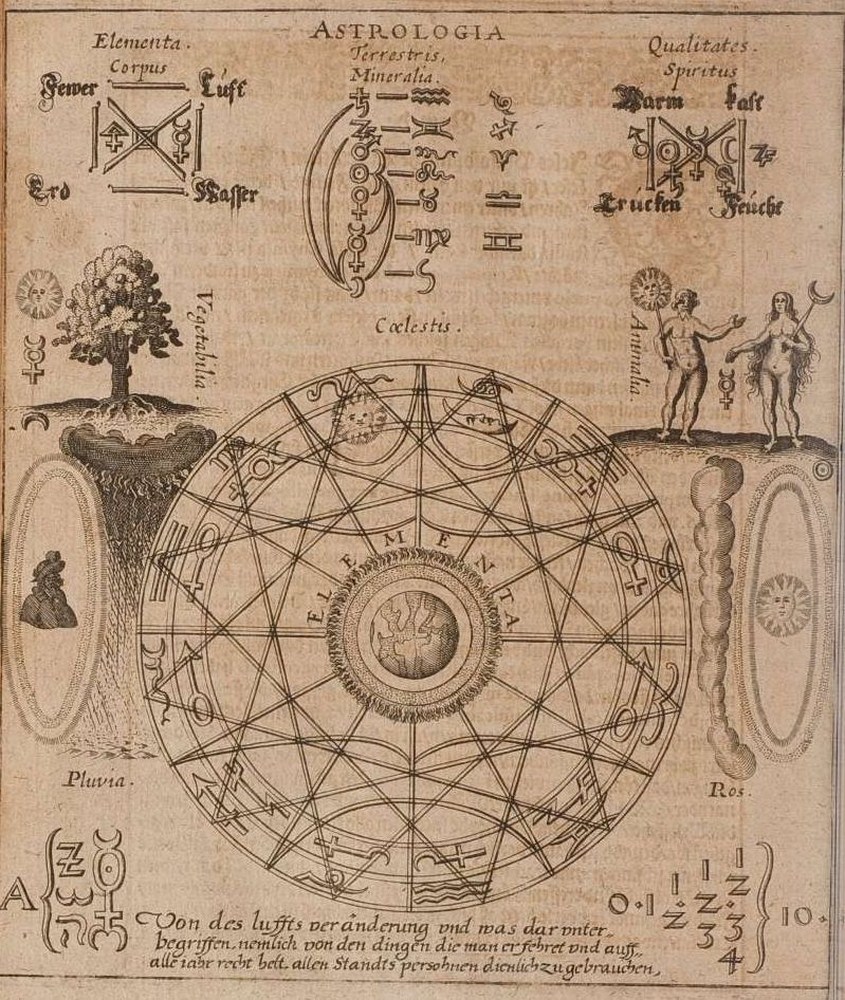 ASTROLOGIA
Elementa.
Corpus
Terrestris,
Mineralia.
Qualitates.
Spiritus
Fewer Lufft
Erd Wasser
Warm kalt
Trücken Feücht
Vegetabilia.
Cœlestis.
Animalia
ELEMENTA
Pluvia.
Ros.
A
0·1 1 1 1
2 2 2
3 3
4
10.
Von des luffts veränderung vnd was dar vnter„
begriffen, nemlich von den dingen die man erfehret vnd auff„
alle iahr recht helt allen Standts persohnen dienlich zu gebrauchen,